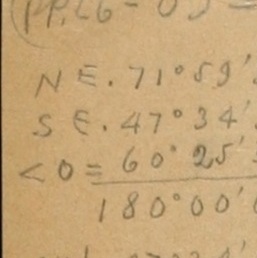 (PP.26-0)
NE. 71°59'
SE. 47°34'
<0= 60°25'
180°00'